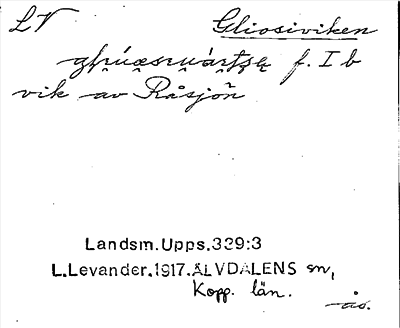 LV Gliosiviken
f. I b
vik av Råsjön
Landsm. Upps. 339:3
L. Levander. 1917. ÄLVDALENS sn,
Kopp. län.